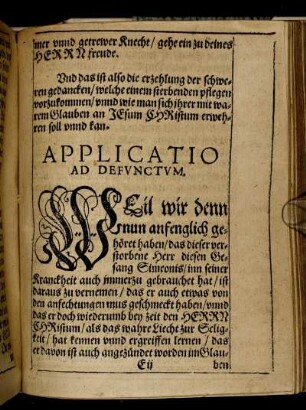 mer vnnd getrewer Knecht / gehe ein zu deines
HERRN freude.
Vnd das ist also die erzehlung der schwe-
ren gedancken / welche einem sterbenden pflegen
vorzukommen / vnnd wie man sich jhrer mit wa-
rem Glauben an JEsum CHRistum erweh-
ren soll vnnd kan.
APPLICATIO
AD DEFVNCTVM.
WEil wir denn
nun anfenglich ge-
höret haben / das dieser ver-
storbene Herr diesen Ge-
sang Simeonis / inn seiner
Kranckheit auch immerzu gebrauchet hat / ist
daraus zu vernemen / das er auch etwas von
den anfechtungen mus geschmeckt haben / vnnd
das er doch wiederumb bey zeit den HERRN
CHRistum / als das wahre Liecht zur Selig-
keit / hat kennen vnnd ergreiffen lernen / das
er davon ist auch angezündet worden im Glau-
E ij
ben